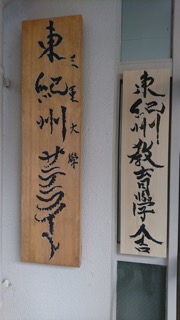 三重大学
東紀州サテライト
東紀州教育學舎